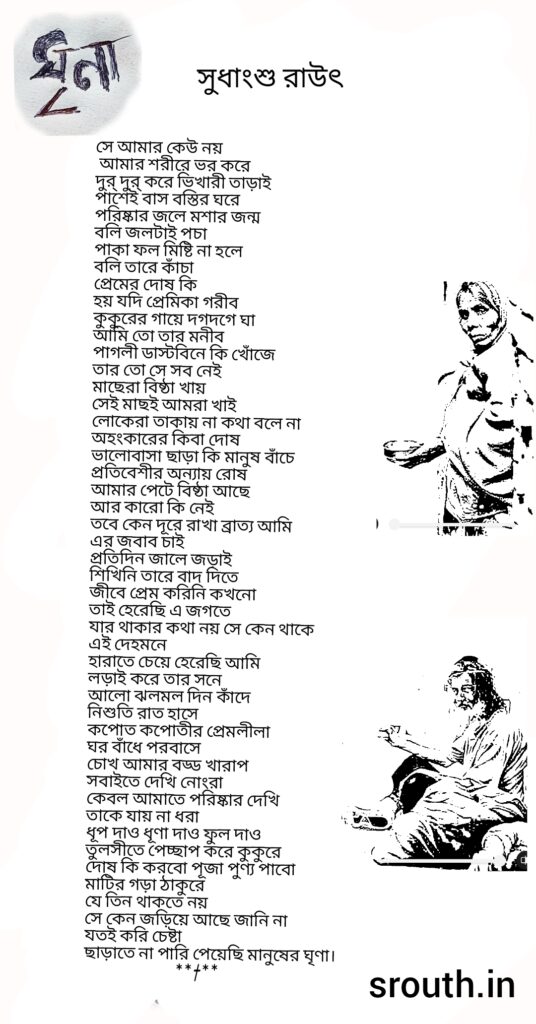 ঘৃনা
সুধাংশু রাউৎ
সে আমার কেউ নয়
আমার শরীরে ভর করে
দুর্ দুর্ করে ভিখারী তাড়াই
পাশেই বাস বস্তির ঘরে
পরিষ্কার জলে মশার জন্ম
বলি জলটাই পচা
পাকা ফল মিষ্টি না হলে
বলি তারে কাঁচা
প্রেমের দোষ কি
হয় যদি প্রেমিকা গরীব
কুকুরের গায়ে দগদগে ঘা
আমি তো তার মনীব
পাগলী ডাস্টবিনে কি খোঁজে
তার তো সে সব নেই
মাছেরা বিষ্ঠা খায়
সেই মাছই আমরা খাই
লোকেরা তাকায় না কথা বলে না
অহংকারের কিবা দোষ
ভালোবাসা ছাড়া কি মানুষ বাঁচে
প্রতিবেশীর অন্যায় রোষ
আমার পেটে বিষ্ঠা আছে
আর কারো কি নেই
তবে কেন দূরে রাখা ব্রাত্য আমি
এর জবাব চাই
প্রতিদিন জালে জড়াই
শিখিনি তারে বাদ দিতে
জীবে প্রেম করিনি কখনো
তাই হেরেছি এ জগতে
যার থাকার কথা নয় সে কেন থাকে
এই দেহমনে
হারাতে চেয়ে হেরেছি আমি
লড়াই করে তার সনে
আলো ঝলমল দিন কাঁদে
নিশুতি রাত হাসে
কপোত কপোতীর প্রেমলীলা
ঘর বাঁধে পরবাসে
চোখ আমার বড্ড খারাপ
সবাইতে দেখি নোংরা
কেবল আমাতে পরিষ্কার দেখি
তাকে যায় না ধরা
ধূপ দাও ধূণা দাও ফুল দাও
তুলসীতে পেচ্ছাপ করে কুকুরে
দোষ কি করবো পূজা পুণ্য পাবো
মাটির গড়া ঠাকুরে
যে তিন থাকতে নয়
সে কেন জড়িয়ে আছে জানি না
যতই করি চেষ্টা
ছাড়াতে না পারি পেয়েছি মানুষের ঘৃণা।
**†**
srouth.in